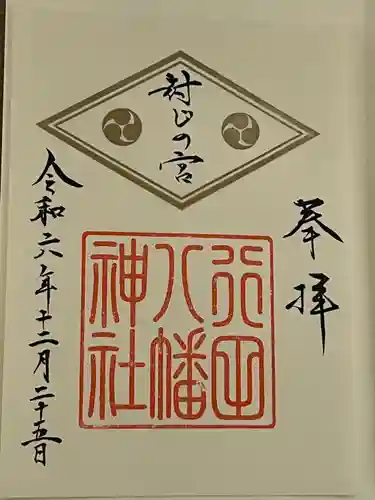 奉拝
封じの宮
行田
八幡
神社
令和六年十二月二十五日